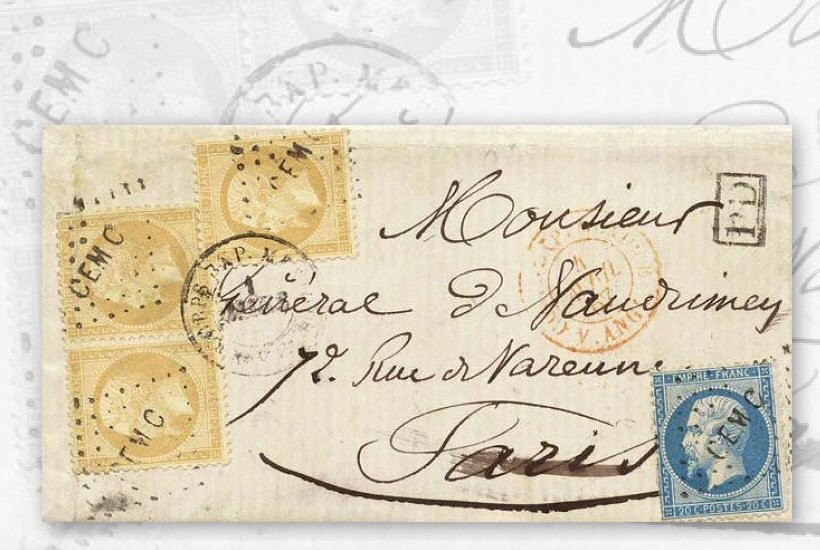 CEMC
CEMC
CEMC
EMC
PD
Monsieur
Général d Naudrimey
V. ANG.
72. Rue de Varenne
Paris
EMPIRE FRANC
CEMC
20C POSTES 20C